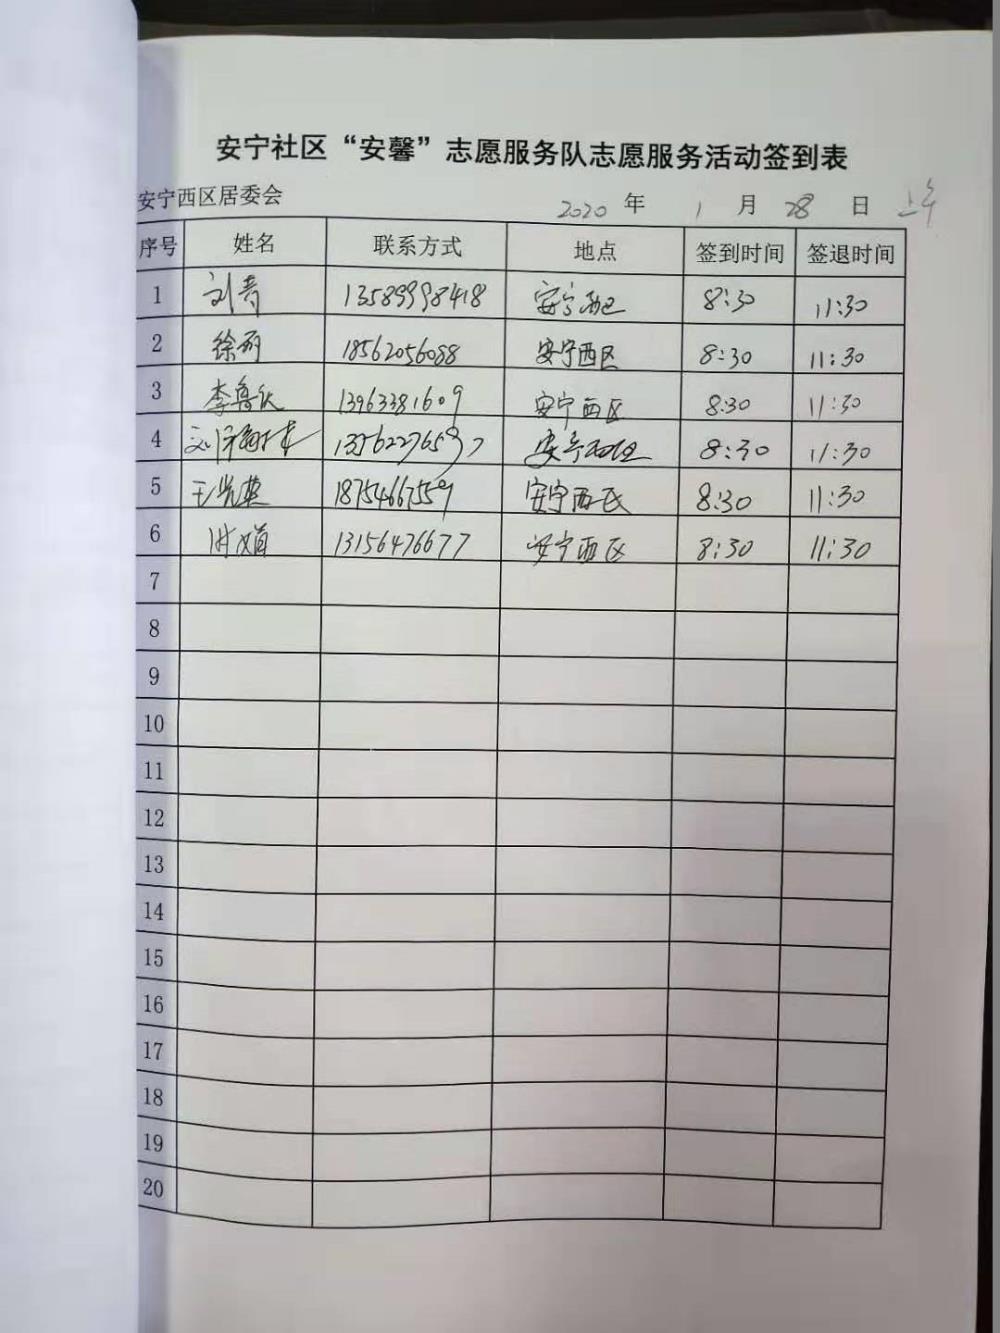 安宁社区“安馨”志愿服务队志愿服务活动签到表
安宁西区居委会 2020 年 1 月 28 日 上午
序号 姓名 联系方式 地点 签到时间 签退时间
1 刘青 13589998418 安宁西区 8:30 11:30
2 徐丽 18562056088 安宁西区 8:30 11:30
3 李鲁 13963381609 安宁西区 8:30 11:30
4 安宁西区 8:30 11:30
5 王光英 18754667559 安宁西区 8:30 11:30
6 13156476677 安宁西区 8:30 11:30
7
8
9
10
11
12
13
14
15
16
17
18
19
20